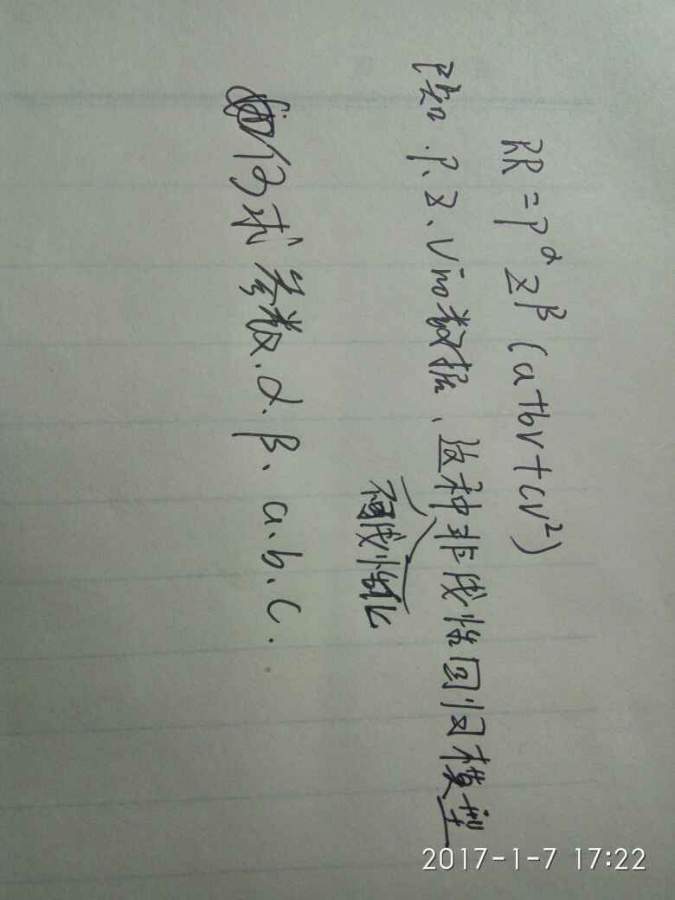 RR = P^α Z^β (a+bv+cv²)
已知 P、Z、V的数据、这种非线性回归模型
可线性化
如何求参数 α. β. a. b. c.
2017-1-7 17:22